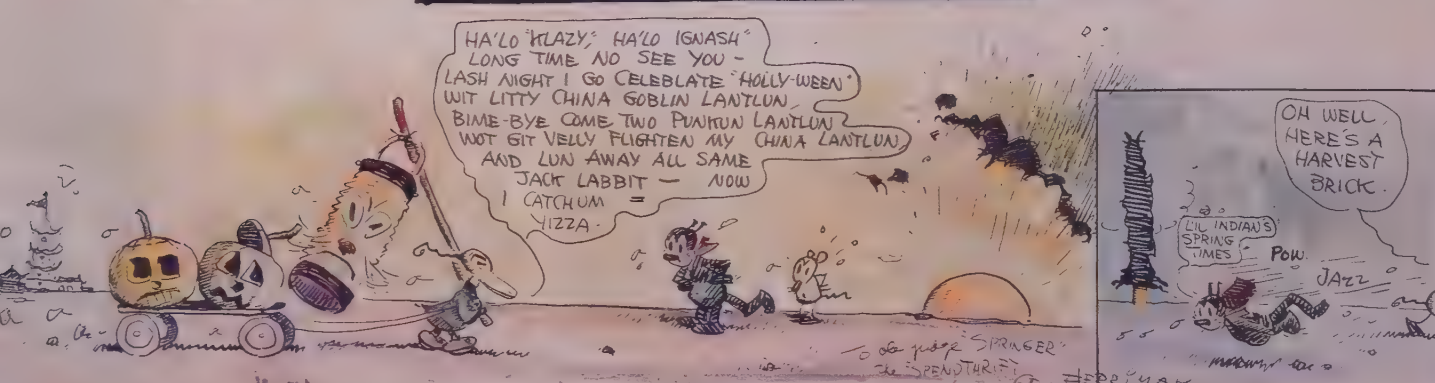 HA'LO "KLAZY," HA'LO IGNASH"
LONG TIME NO SEE YOU -
LASH NIGHT I GO CELEBLATE "HOLLY-WEEN"
WIT LITTY CHINA GOBLIN LANTLUN,
BIME-BYE COME TWO PUNKUN LANTLUN
WOT GIT VELLY FLIGHTEN MY CHINA LANTLUN,
AND LUN AWAY ALL SAME
JACK LABBIT — NOW
I CATCHUM =
YIZZA.
SPRINGER"
The SPENDTHRIFT
OH WELL,
HERE'S A
HARVEST
BRICK.
L'IL INDIAN'S
SPRING
TIMES
POW
JAZZ
HERRIMAN